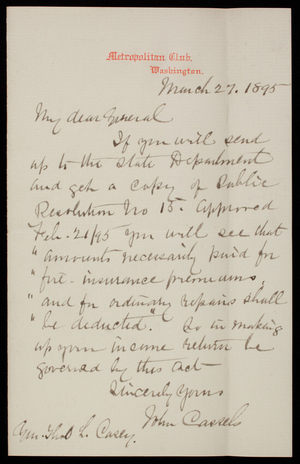 Metropolitan Club,
Washington.
March 27. 1895
My dear General
If you will send
up to the State Department
and get a copy of Public
Resolution No 15. approved
Feb. 21/95 you will see that
"amounts necessarily paid for
"fire-insurance premiums,
"and for ordinary repairs shall
"be deducted". So in making
up your income return be
governed by this act.
Sincerely Yours
John Cassels
Gen. Thos L. Casey.